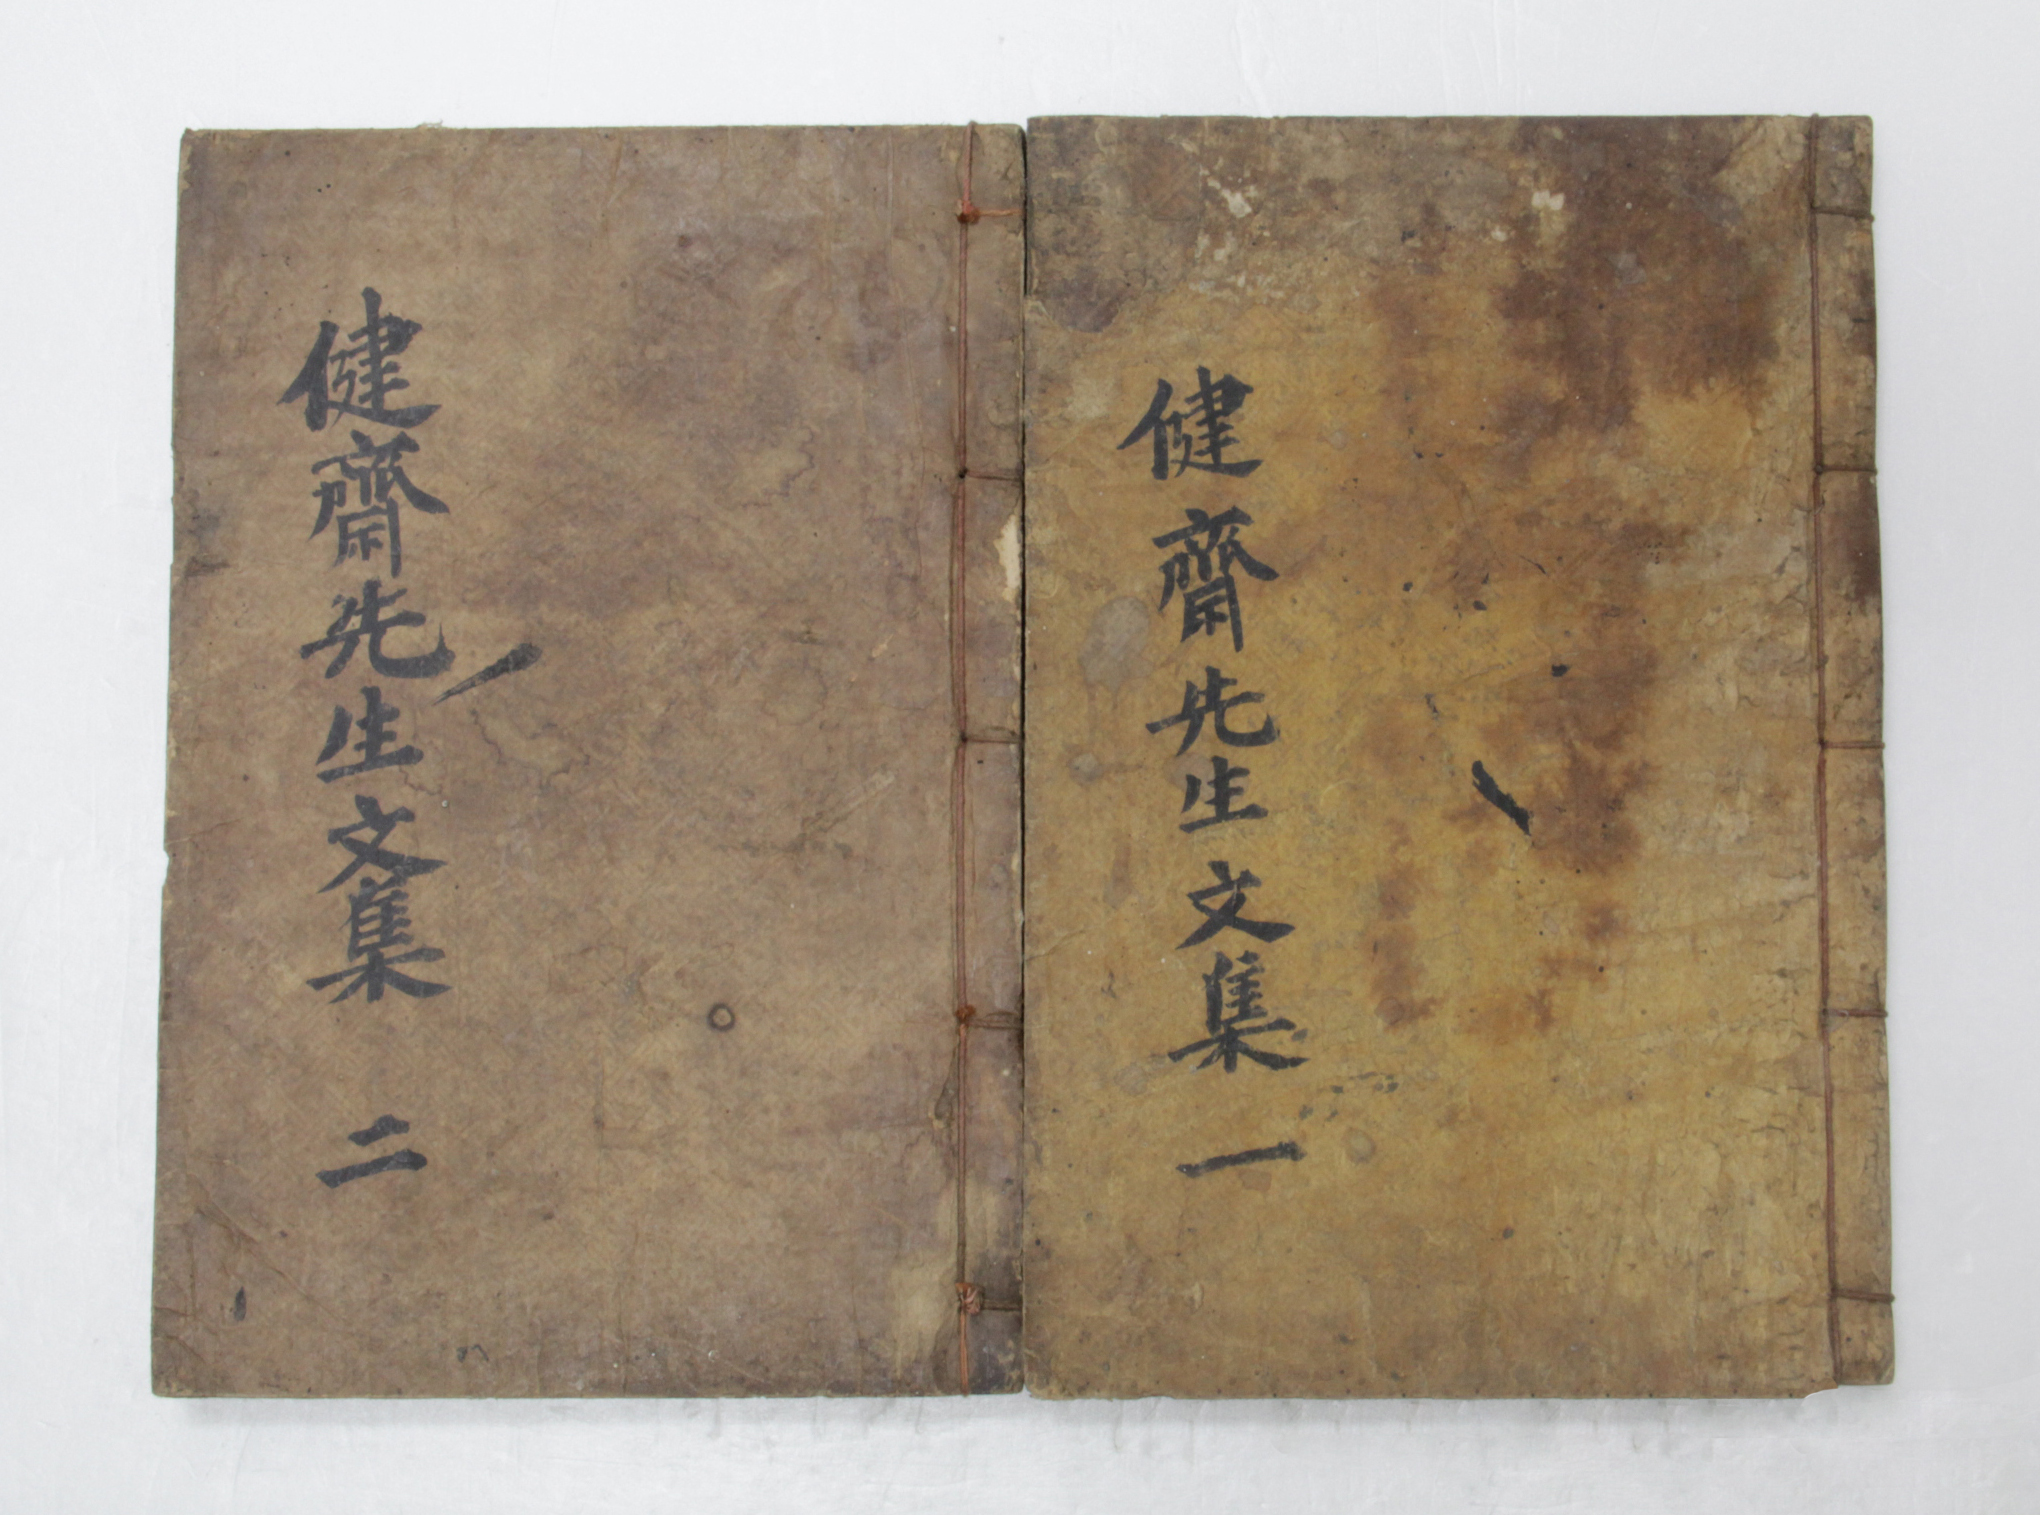 健齋先生文集 一
健齋先生文集 二